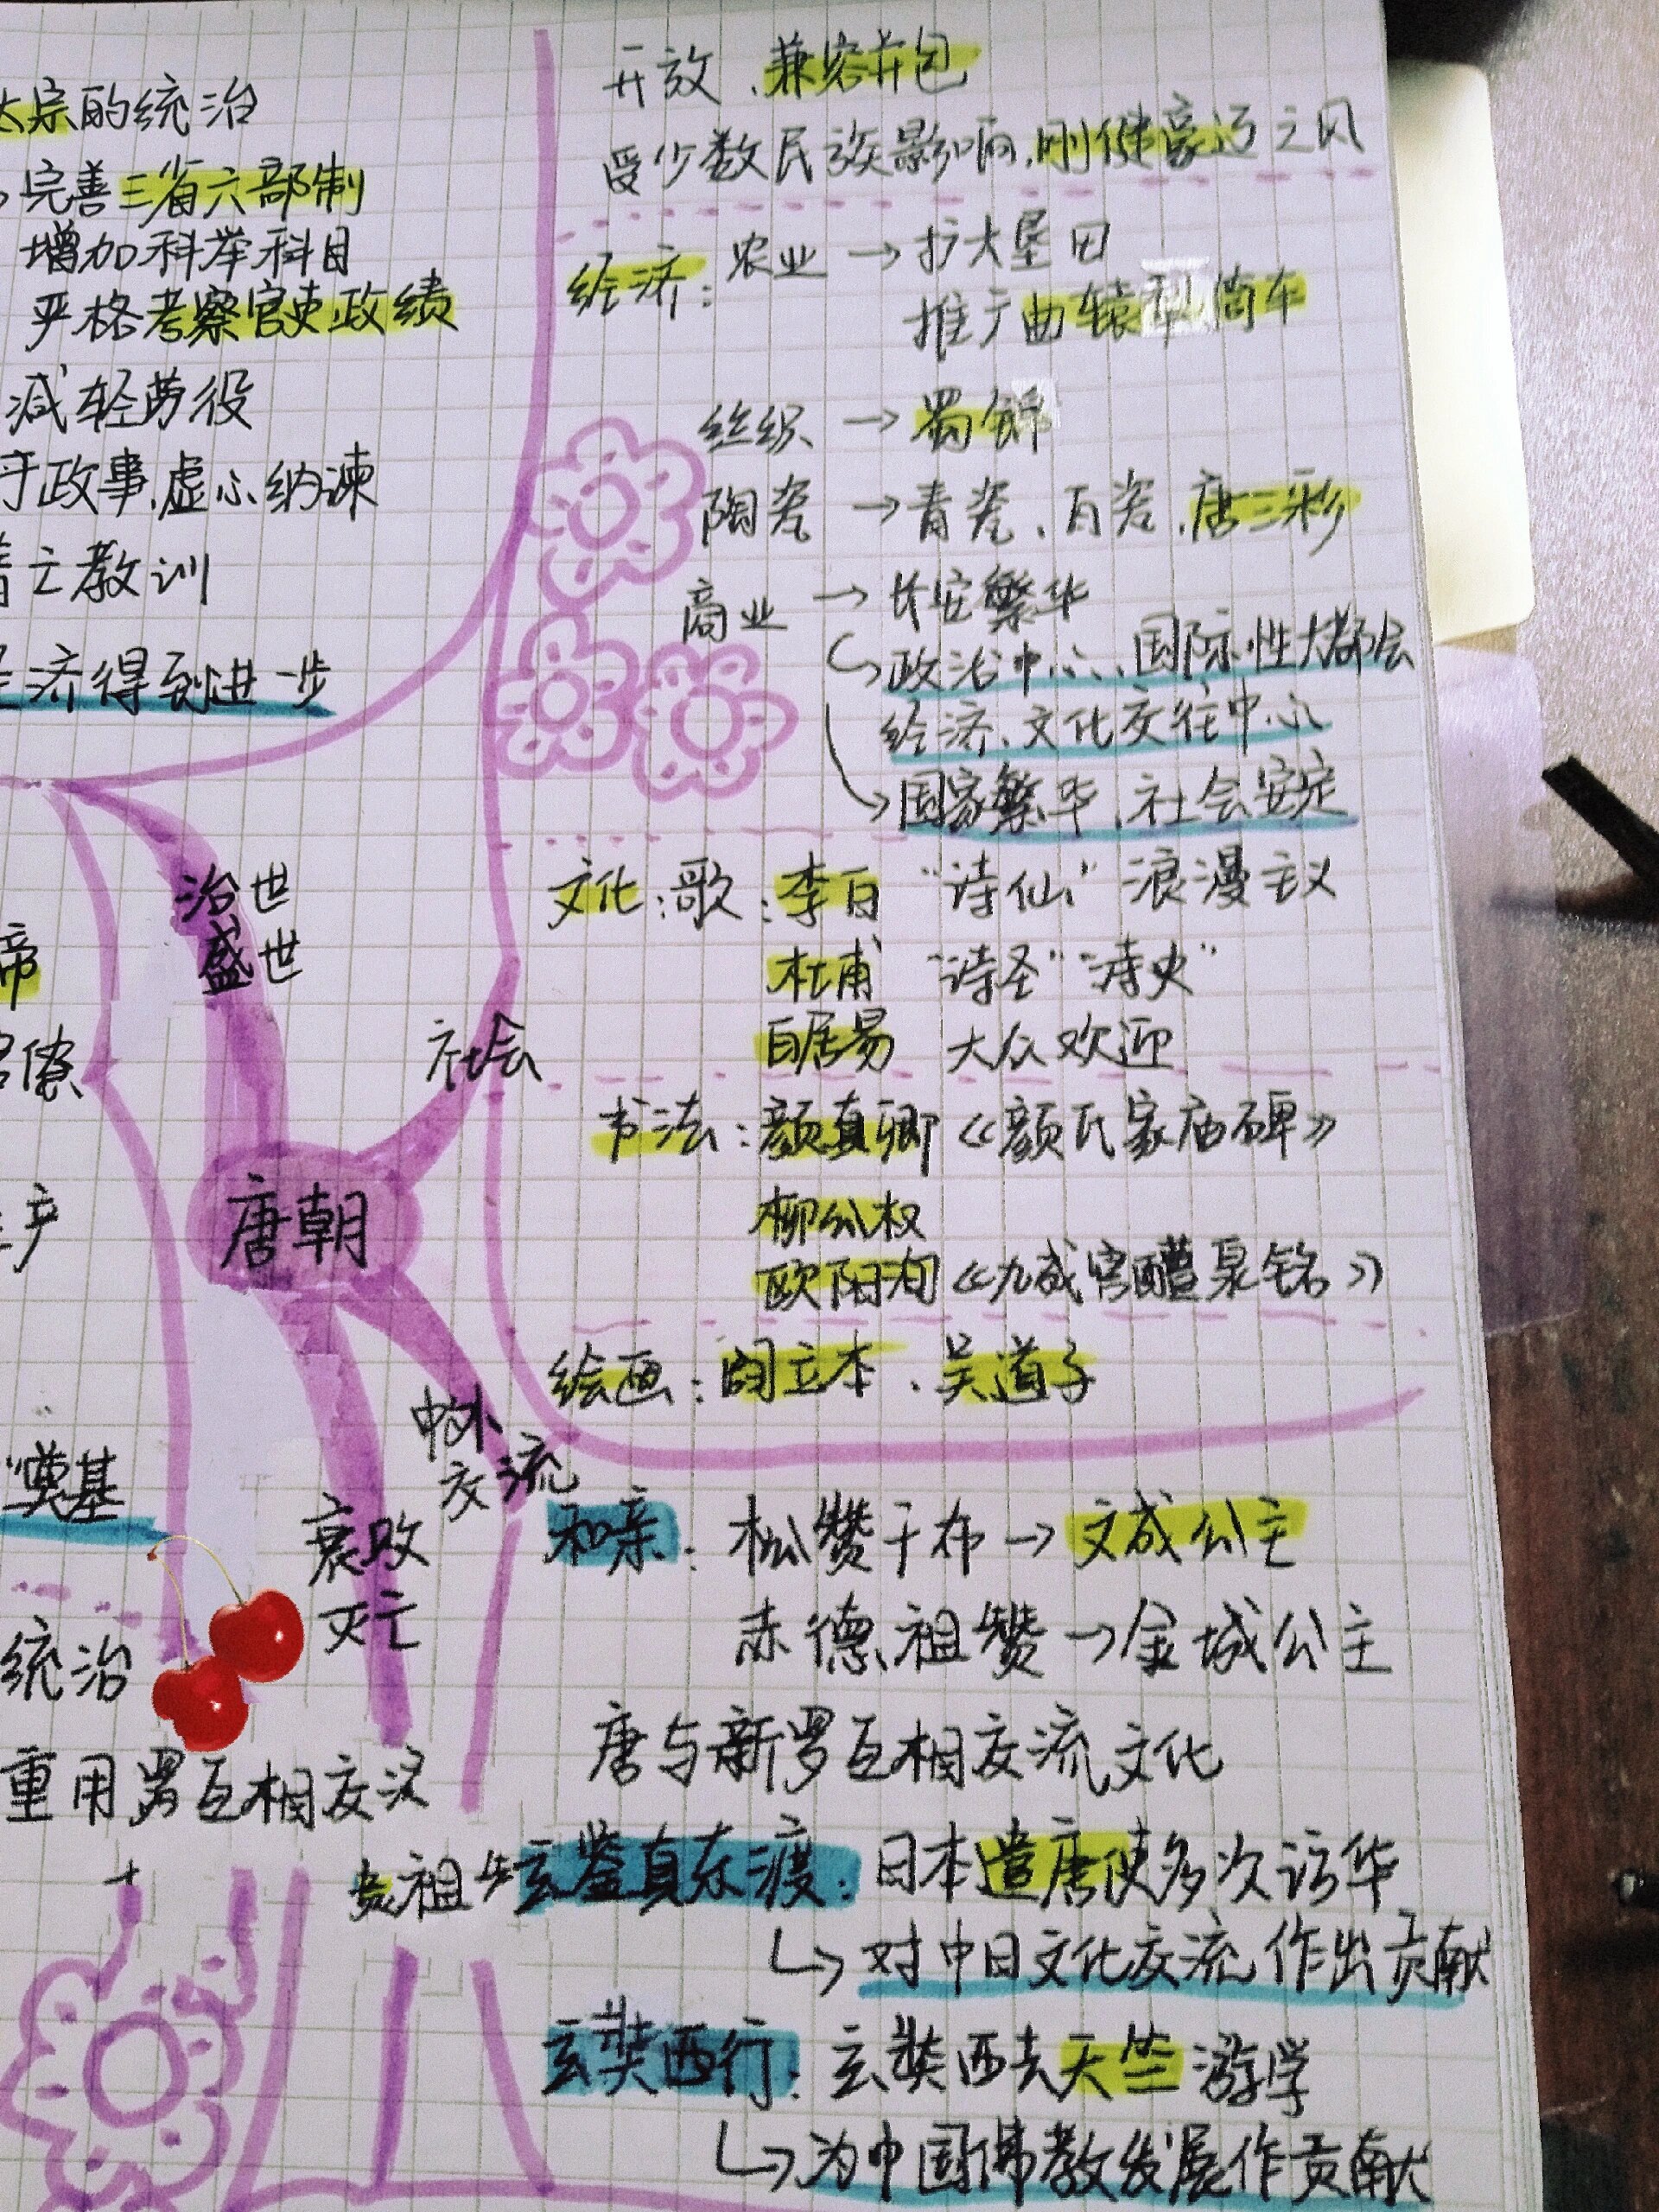 太宗的统治
完善三省六部制
增加科举科目
严格考察官吏政绩
减轻劳役
于政事、虚心纳谏
亡教训
济得到进一步
治世
盛世
社会
帝
唐朝
产
中外
交流
奠基
衰败
灭亡
统治
重用罗互相交流
开放、兼容并包
受少数民族影响、刚健豪迈之风
经济：农业→扩大垦田
推广曲辕犁、筒车
丝织→蜀锦
陶瓷→青瓷、白瓷、唐三彩
商业→长安繁华
政治中心、国际性大都会
经济、文化交往中心
国家繁华、社会安定
文化：歌：李白“诗仙”浪漫主义
杜甫“诗圣”“诗史”
白居易 大众欢迎
书法：颜真卿《颜氏家庙碑》
柳公权
欧阳询《九成宫醴泉铭》
绘画：阎立本、吴道子
和亲：松赞干布→文成公主
赤德祖赞→金城公主
唐与新罗互相交流文化
祖 玄鉴真东渡：日本遣唐使多次访华
对中日文化交流作出贡献
玄奘西行：玄奘西去天竺游学
为中国佛教发展作贡献